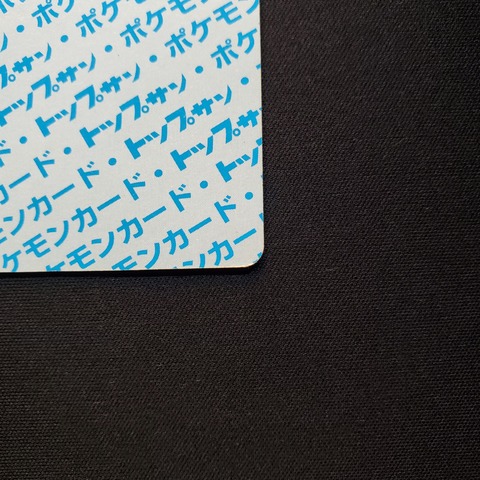 ・ポケモン
サン・ポケモン
トップサン・ポケモ
・トップサン・ポケ
ド・トップサン・
ード・トップサン
カード・トップサ
ンカード・トッ
モンカード・
ケモンカード
ポケモン